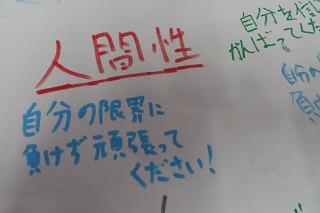 人間性
自分の限界に
負けず頑張って
ください!
自分を信じ
がんばってくだ